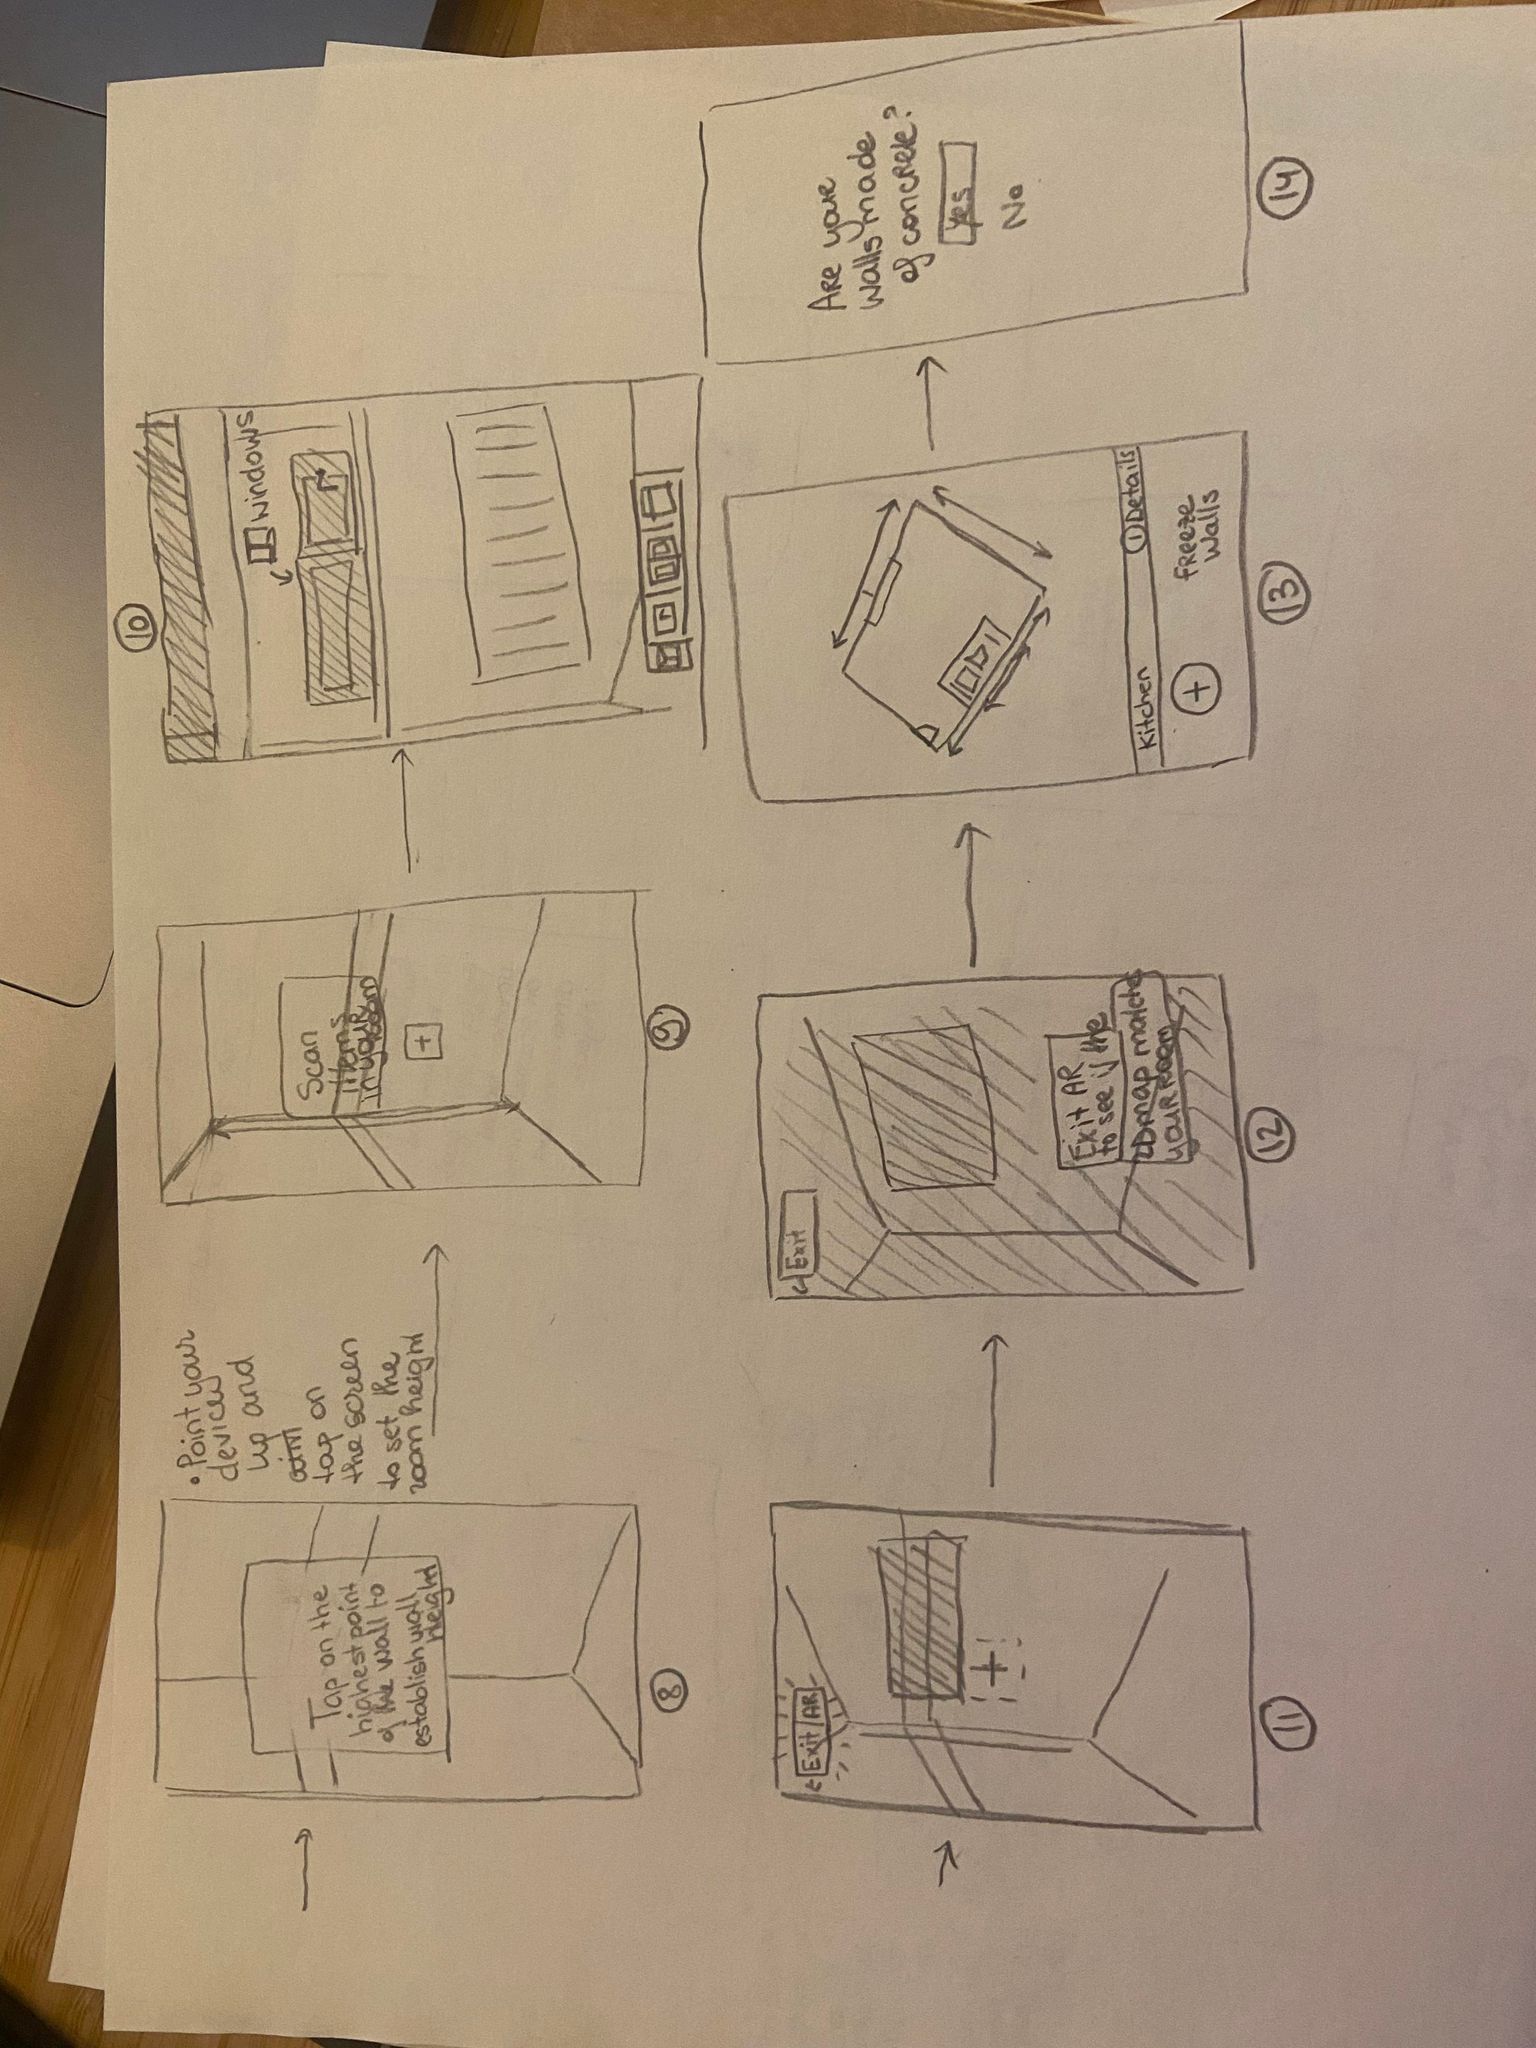 Tap on the
highest point
of the wall to
establish wall
height
8
• Point your
device
up and
aim
tap on
the screen
to set the
room height
Scan
items
in your
room
+
9
10
windows
Exit AR
+
11
Exit
Exit AR
to see if the
2D map matches
your room
12
Kitchen
i Details
+
Freeze
walls
13
Are your
walls made
of concrete?
Yes
No
14